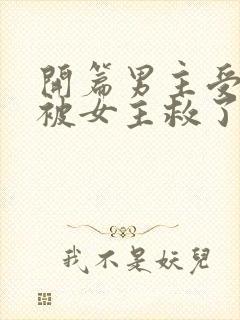 開篇男主受
被女主救了
我不是妖兒